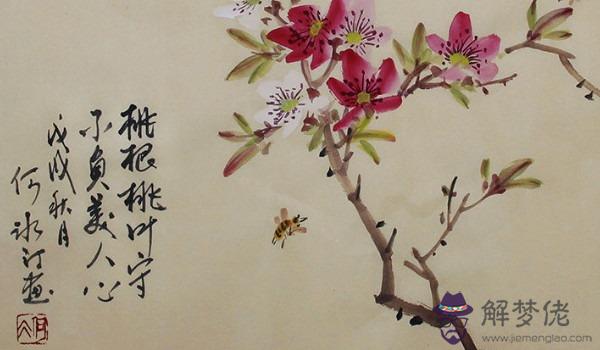 桃根桃叶守
不负美人心
戊戌秋月
何冰汀画
解梦佬
www.jiemenglao.com